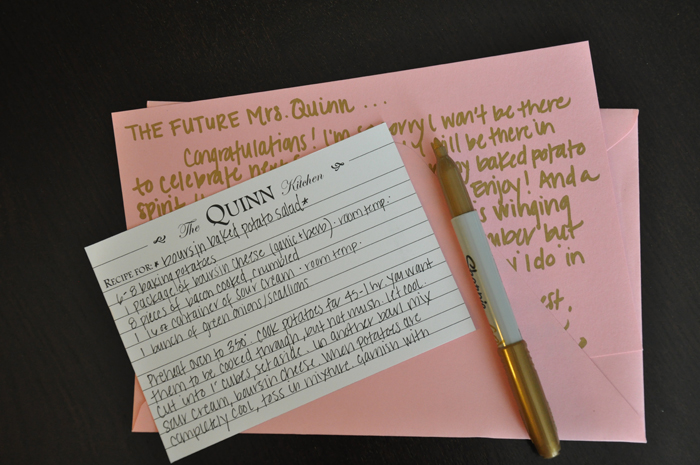 THE FUTURE Mrs. Quinn ...
Congratulations! I'm so sorry I won't be there
to celebrate will be there in
spirit baked potato
Enjoy! And a
winging
but
I do in
The QUINN Kitchen
RECIPE FOR: * boursin baked potato salad *
6-8 baking potatoes
1 package of boursin cheese (garlic + herb) · room temp.
8 pieces of bacon cooked, crumbled
1 container of sour cream · room temp.
1 bunch of green onions/scallions
Preheat oven to 350° cook potatoes for 45-1 hr. You want
them to be cooked through, but not mush. Let cool.
Cut into 1" cubes set aside. In another bowl mix
sour cream, boursin cheese. When potatoes are
completely cool, toss in mixture. Garnish with
Sharpie